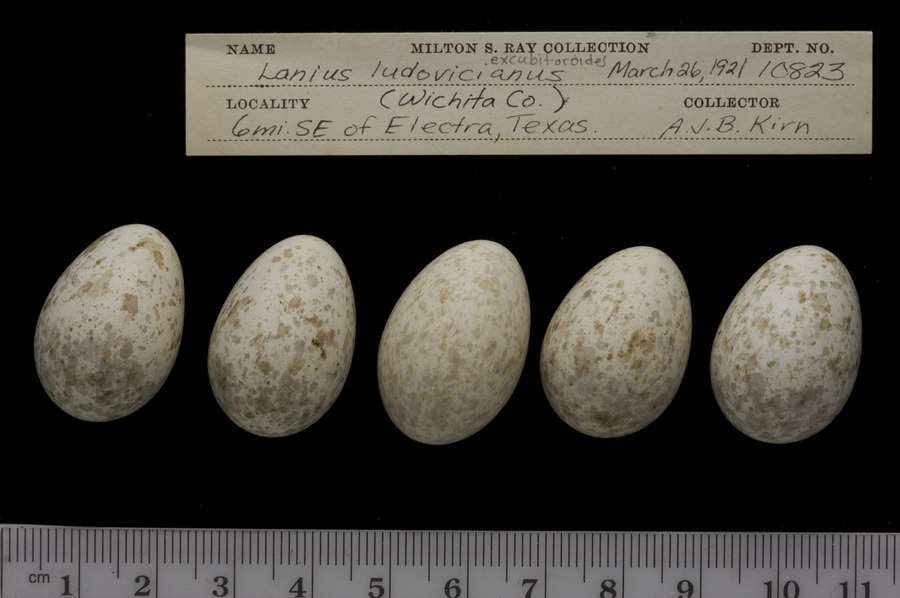 NAME MILTON S. RAY COLLECTION DEPT. NO.
excubitoroides
Lanius ludovicianus March 26, 1921 10823
LOCALITY (Wichita Co.) COLLECTOR
6mi. SE of Electra, Texas. A.J.B. Kirn
cm 1 2 3 4 5 6 7 8 9 10 11